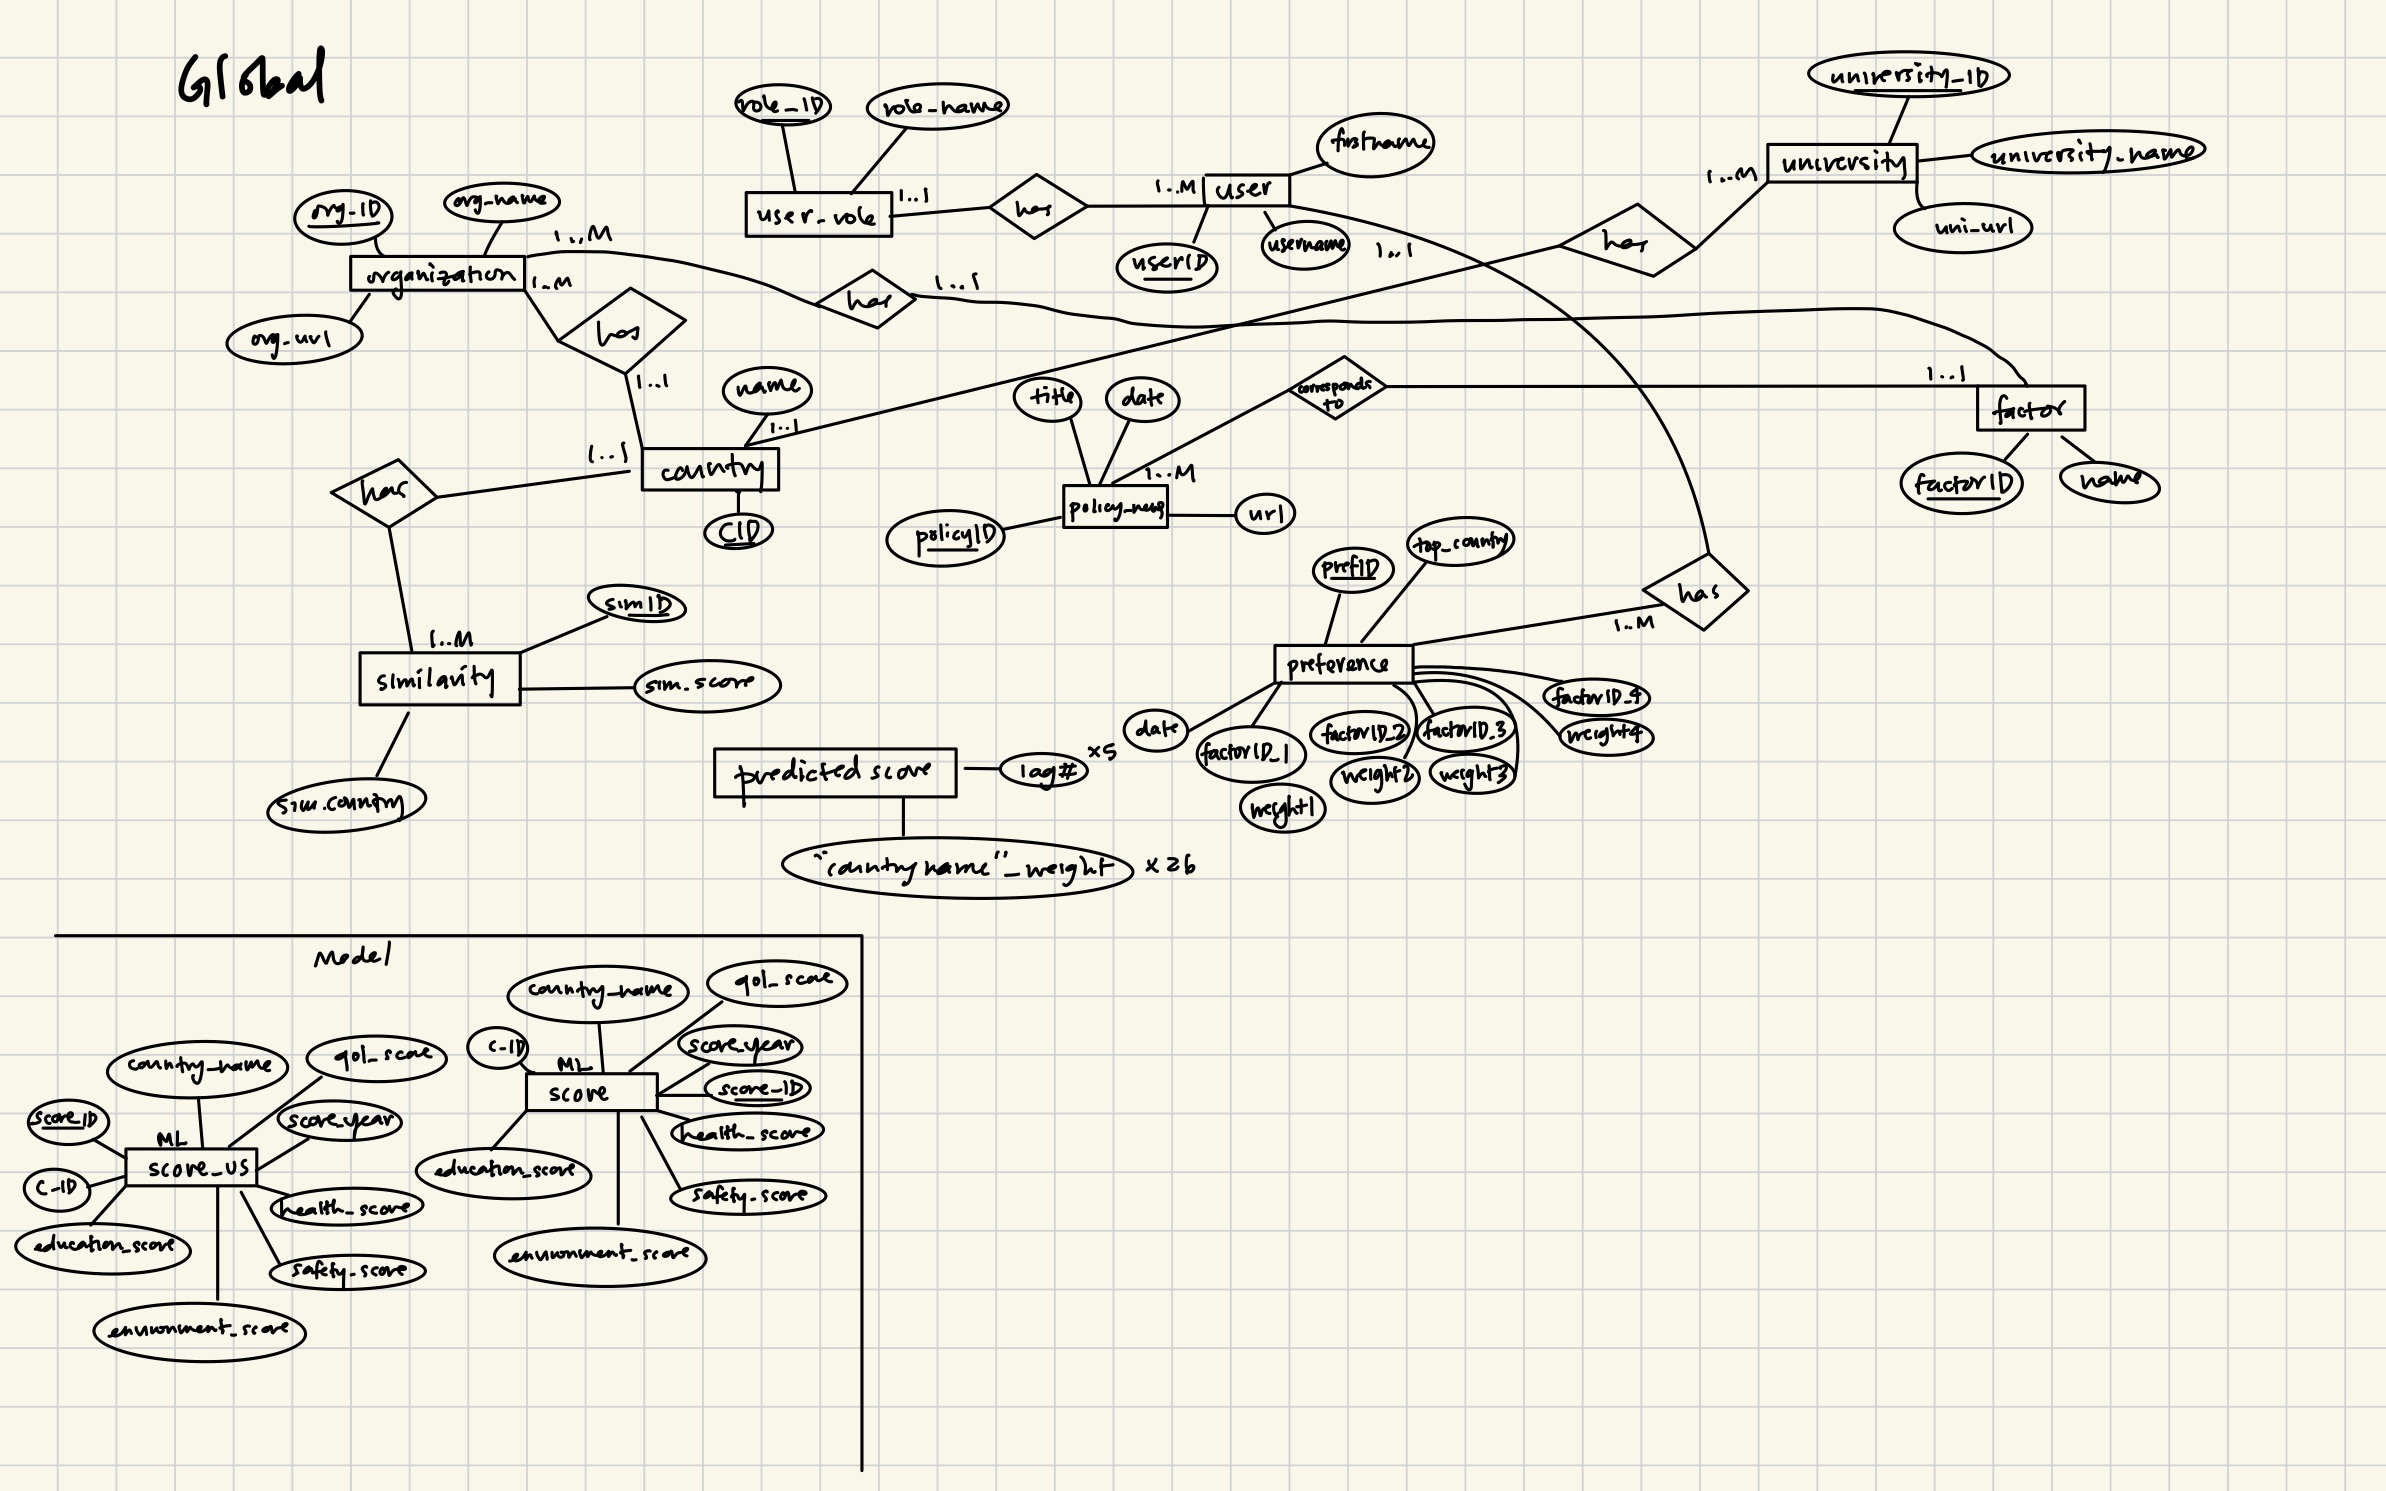 Global
role_ID
role_name
user_role
1..1
has
1..M
user
firstname
userID
username
1..1
university_ID
university
university_name
uni_url
1..M
has
org_ID
org_name
organization
org_url
1..M
1..M
has
1..1
has
1..1
name
1..1
country
CID
1..1
has
1..M
similarity
simID
sim.score
sim.country
title
date
corresponds
to
1..1
factor
factorID
name
1..M
policyID
url
prefID
top_country
has
1..M
preference
date
factorID_1
weight1
factorID_2
weight2
factorID_3
weight3
factorID_4
weight4
predicted score
lag#
x5
"country name"_weight
x 26
Model
country_name
qol_score
score_year
score_ID
C-ID
ML
score_us
health_score
education_score
safety_score
environment_score
country_name
qol_score
C-ID
ML
score
score_year
score_ID
health_score
education_score
safety_score
environment_score